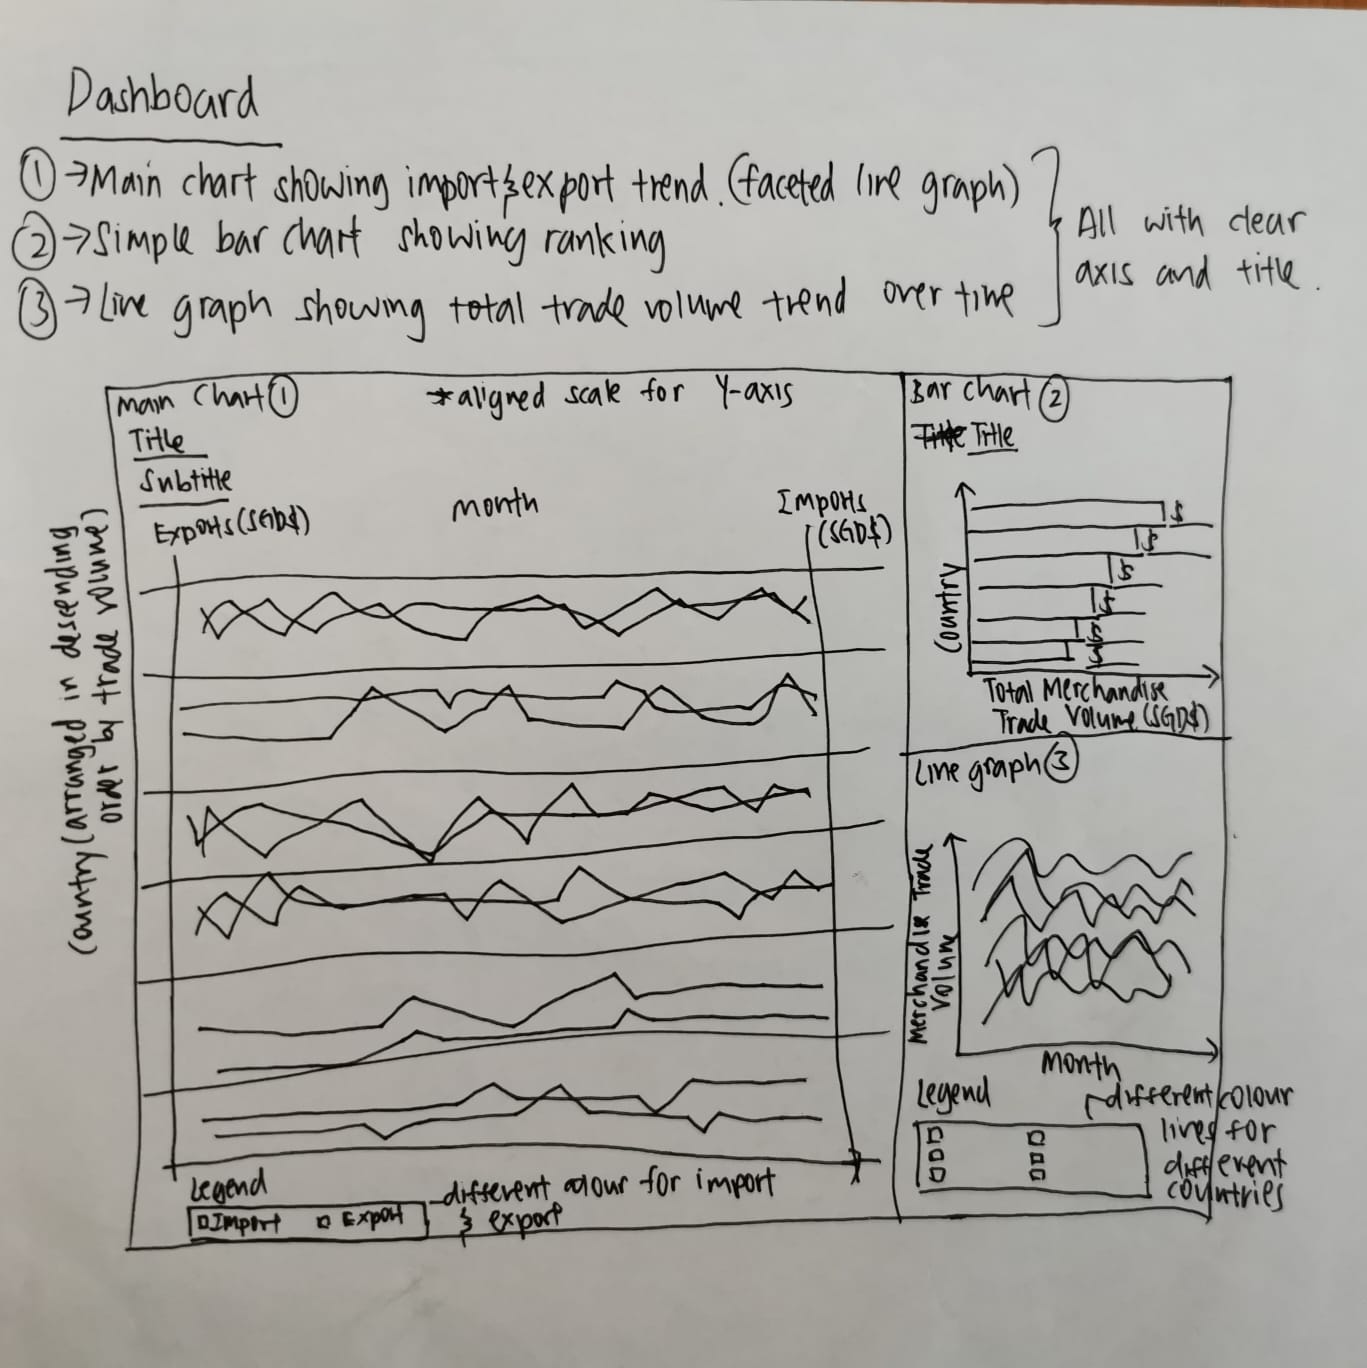 Dashboard
① → Main chart showing import & export trend. (faceted line graph)
② → Simple bar chart showing ranking
③ → Line graph showing total trade volume trend over time
All with clear
axis and title.
Main Chart ①
*aligned scale for Y-axis
Title
Subtitle
Exports (SGD$)
Month
Imports
(SGD$)
Country (arranged in descending
order by trade volume)
Legend
Import Export
different colour for import
& export
Bar Chart ②
Title
Country
$
$
$
Total Merchandise
Trade Volume (SGD$)
Line graph ③
Merchandise Trade
Volume
Month
Legend
different colour
lines for
different
countries